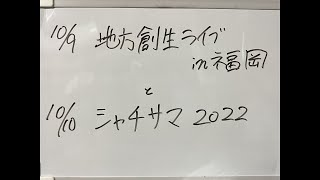 10/9 地方創生ライブ
in福岡
と
10/10 シャチサマ 2022